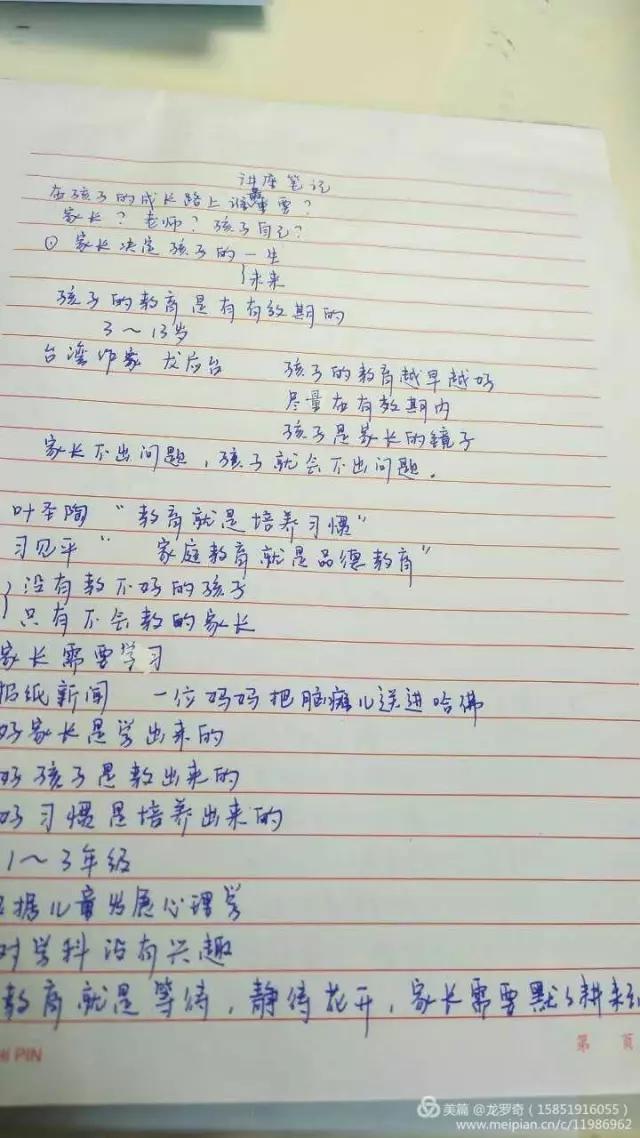 讲座笔记
在孩子的成长路上谁重要？
家长？老师？孩子自己？
① 家长决定孩子的一生
未来
孩子的教育是有有效期的
3～13岁
台湾作家 龙应台 孩子的教育越早越好
尽量在有效期内
孩子是家长的镜子
家长不出问题，孩子就会不出问题。
叶圣陶“教育就是培养习惯”
习近平“家庭教育就是品德教育”
没有教不好的孩子
只有不会教的家长
家长需要学习
报纸新闻 一位妈妈把脑瘫儿送进哈佛
好家长是学出来的
好孩子是教出来的
好习惯是培养出来的
1～3年级
据儿童发展心理学
对学科没有兴趣
教育就是等待，静待花开，家长需要默々耕耘
PIN
第 页
美篇 @龙罗奇（15851916055）
www.meipian.cn/c/11986962